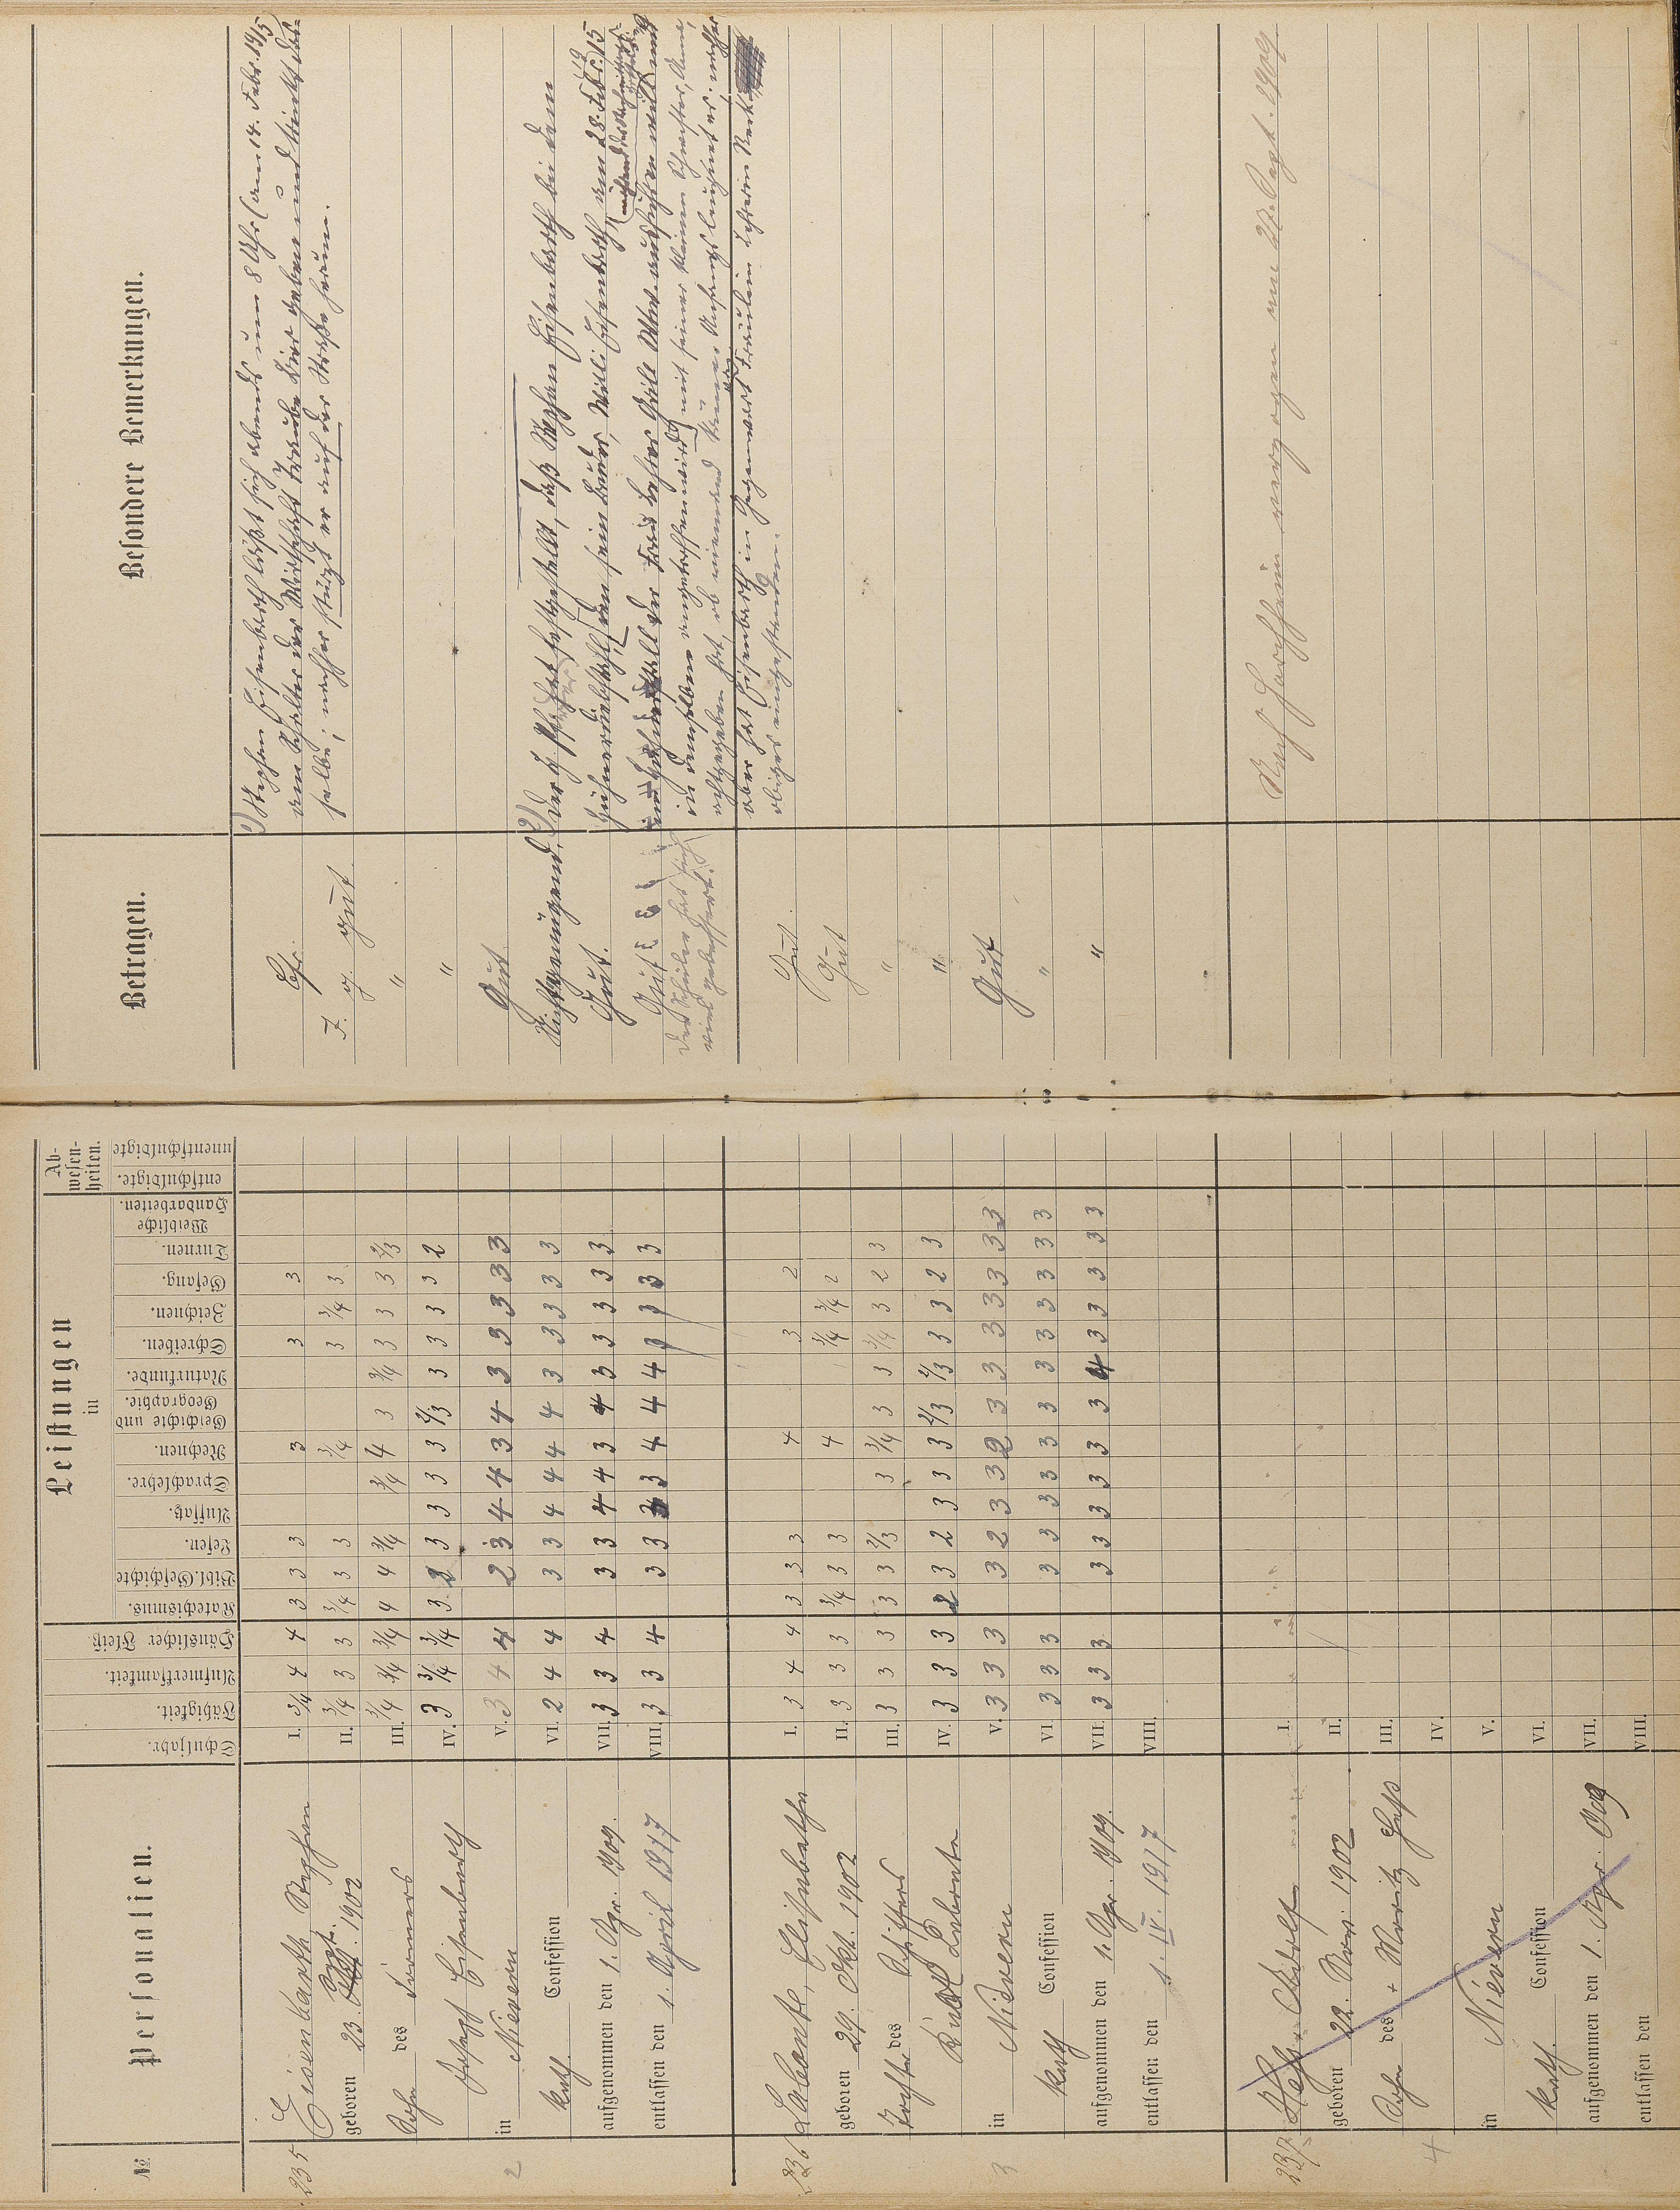 №
Personalien.
Schuljahr.
Fähigkeit.
Aufmerksamkeit.
Häuslicher Fleiß.
Leistungen
in
Katechismus.
Bibl. Geschichte
Lesen.
Aufsatz.
Sprachlehre.
Rechnen.
Geschichte und Geographie.
Naturkunde.
Schreiben.
Zeichnen.
Gesang.
Turnen.
Weibliche Handarbeiten.
Ab-
wesen-
heiten.
entschuldigte.
unentschuldigte
Betragen.
Besondere Bemerkungen.
235
2
Eisenbarth Stephan
geboren 23. Sept. 1902
Sohn des
Joseph Eisenbarth
in Nievern
kath. Confession
aufgenommen den 1. Apr. 1909.
entlassen den 1. April 1917
I. 3/4 4 4 3 3 3 3 3 3
II. 3/4 3 3 3/4 3 3 3/4 3 3/4 3
III. 3/4 3/4 3/4 4 4 3/4 3/4 4 3 3/4 3 3 3 2/3
IV. 3 3/4 3/4 3 2 3 3 3 3 2/3 3 3 3 3 2
V. 3 4 4 2 3 4 4 3 4 3 3 3 3 3
VI. 2 4 4 3 3 4 4 4 4 3 3 3 3 3
VII. 3 3 4 3 3 4 4 3 4 3 3 3 3 3
VIII. 3 3 4 3 3 3 3 4 4 4 3 3
z. gut
"
"
Gut
Nicht genügend.
Gut.
Gut
Der Schüler hat sich
viel gebessert.
1) Stephan Eisenbarth läßt sich abends um 8 Uhr (am 14. Febr. 1915)
am Schalter der Wirtschaft Traube Bier geben und trinkt das-
selbe; nachher stürzt er auf der Straße herum.
2) Der H. Pfarrer hat festgestellt, daß Stephan Eisenbarth bei dem
Hühnerdiebstahl, den sein Bruder, Willi Eisenbarth, am 28. Febr. 1915
im Hühnerstall der Frau Lehrer ausführen will und
in demselben angetroffen wird, mit seiner kleinen Schwester, Anna,
achtgegeben hat, ob niemand käme. Anfangs leugnet er, nachher
aber hat Eisenbarth in Gegenwart von Fräulein Lehrerin
obiges eingestanden.
236
3
Labonte, Elisabetha
geboren 29. Okt. 1902
Tochter des Schiffers
Labonte
in Nievern
kath Confession
aufgenommen den 1. Apr. 1909.
entlassen den 1. IV. 1917
I. 3 4 4 3 3 3 4 3 2
II. 3 3 3 3/4 3 3 4 3/4 3/4 2
III. 3 3 3 3 3 2/3 3 3/4 3 3 3/4 3 2 3
IV. 3 3 3 2 3 2 3 3 3 2/3 2/3 3 3 2 3
V. 3 3 3 3 2 3 3 2 3 3 3 3 3 3 3
VI. 3 3 3 3 3 3 3 3 3 3 3 3 3 3 3
VII. 3 3 3 3 3 3 3 3 3 4 3 3 3 3 3
VIII.
Gut
Gut
"
"
Gut
"
"
237.
4
Heß, Adolf
geboren 22. Nov. 1902
Sohn des + Moritz Heß
in Nievern
kath. Confession
aufgenommen den 1. Apr. 1909
entlassen den
I.
II.
III.
IV.
V.
VI.
VII.
VIII.
Nach Horchheim verzogen am 22. Sept. 1909